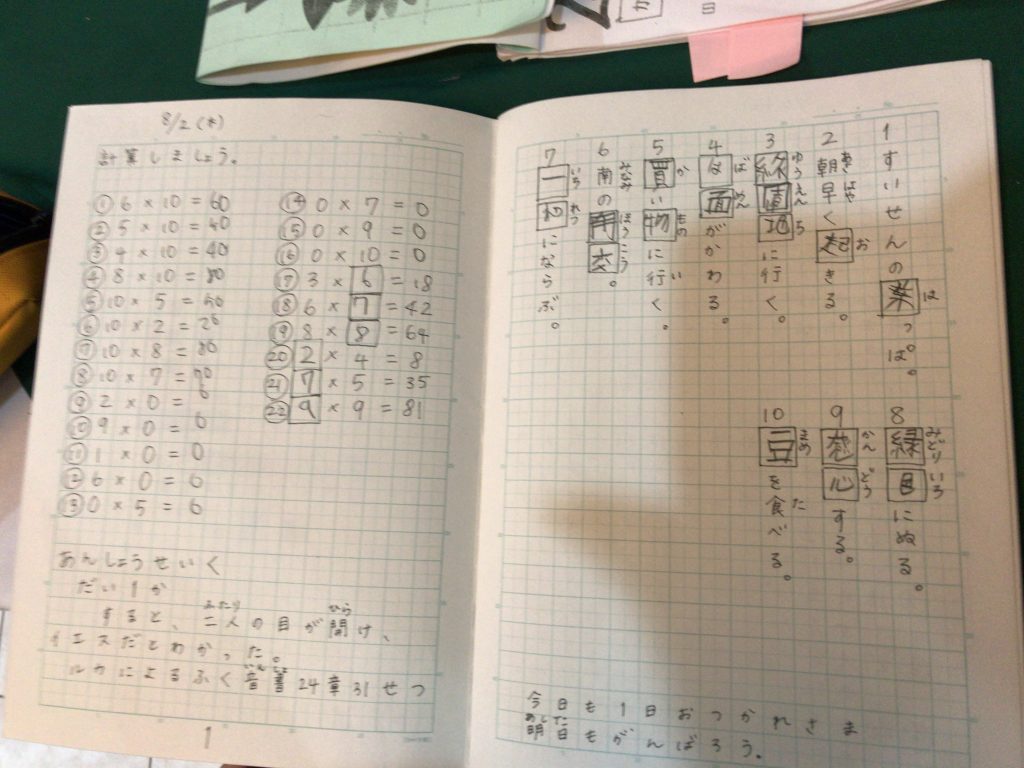 8/2 (木)
計算しましょう。
① 6 × 10 = 60
② 5 × 10 =
③ 4 × 10 = 40
④ 8 × 10 = 80
⑤ 10 × 5 = 50
⑥ 10 × 2 = 20
⑦ 10 × 8 = 80
⑧ 10 × 7 = 70
⑨ 2 × 0 = 0
⑩ 9 × 0 = 0
⑪ 1 × 0 = 0
⑫ 6 × 0 = 0
⑬ 0 × 5 = 0
⑭ 0 × 7 = 0
⑮ 0 × 9 = 0
⑯ 0 × 10 = 0
⑰ 3 × 6 = 18
⑱ 6 × 7 = 42
⑲ 8 × 8 = 64
⑳ 2 × 4 = 8
㉑ 7 × 5 = 35
㉒ 9 × 9 = 81
あんしょうせいく
だい1か
すると、二人の目が開け、
イエスだとわかった。
ルカによるふく音書24章31せつ
1
1 すいせんの っぱ。
2 朝早く起きる。
3 地に行く。
4 面がかわる。
5 買い物に行く。
6 南の 。
7 一列にならぶ。
8 緑 にぬる。
9 心する。
10 豆を食べる。
今日も1日おつかれさま
明日もがんばろう。